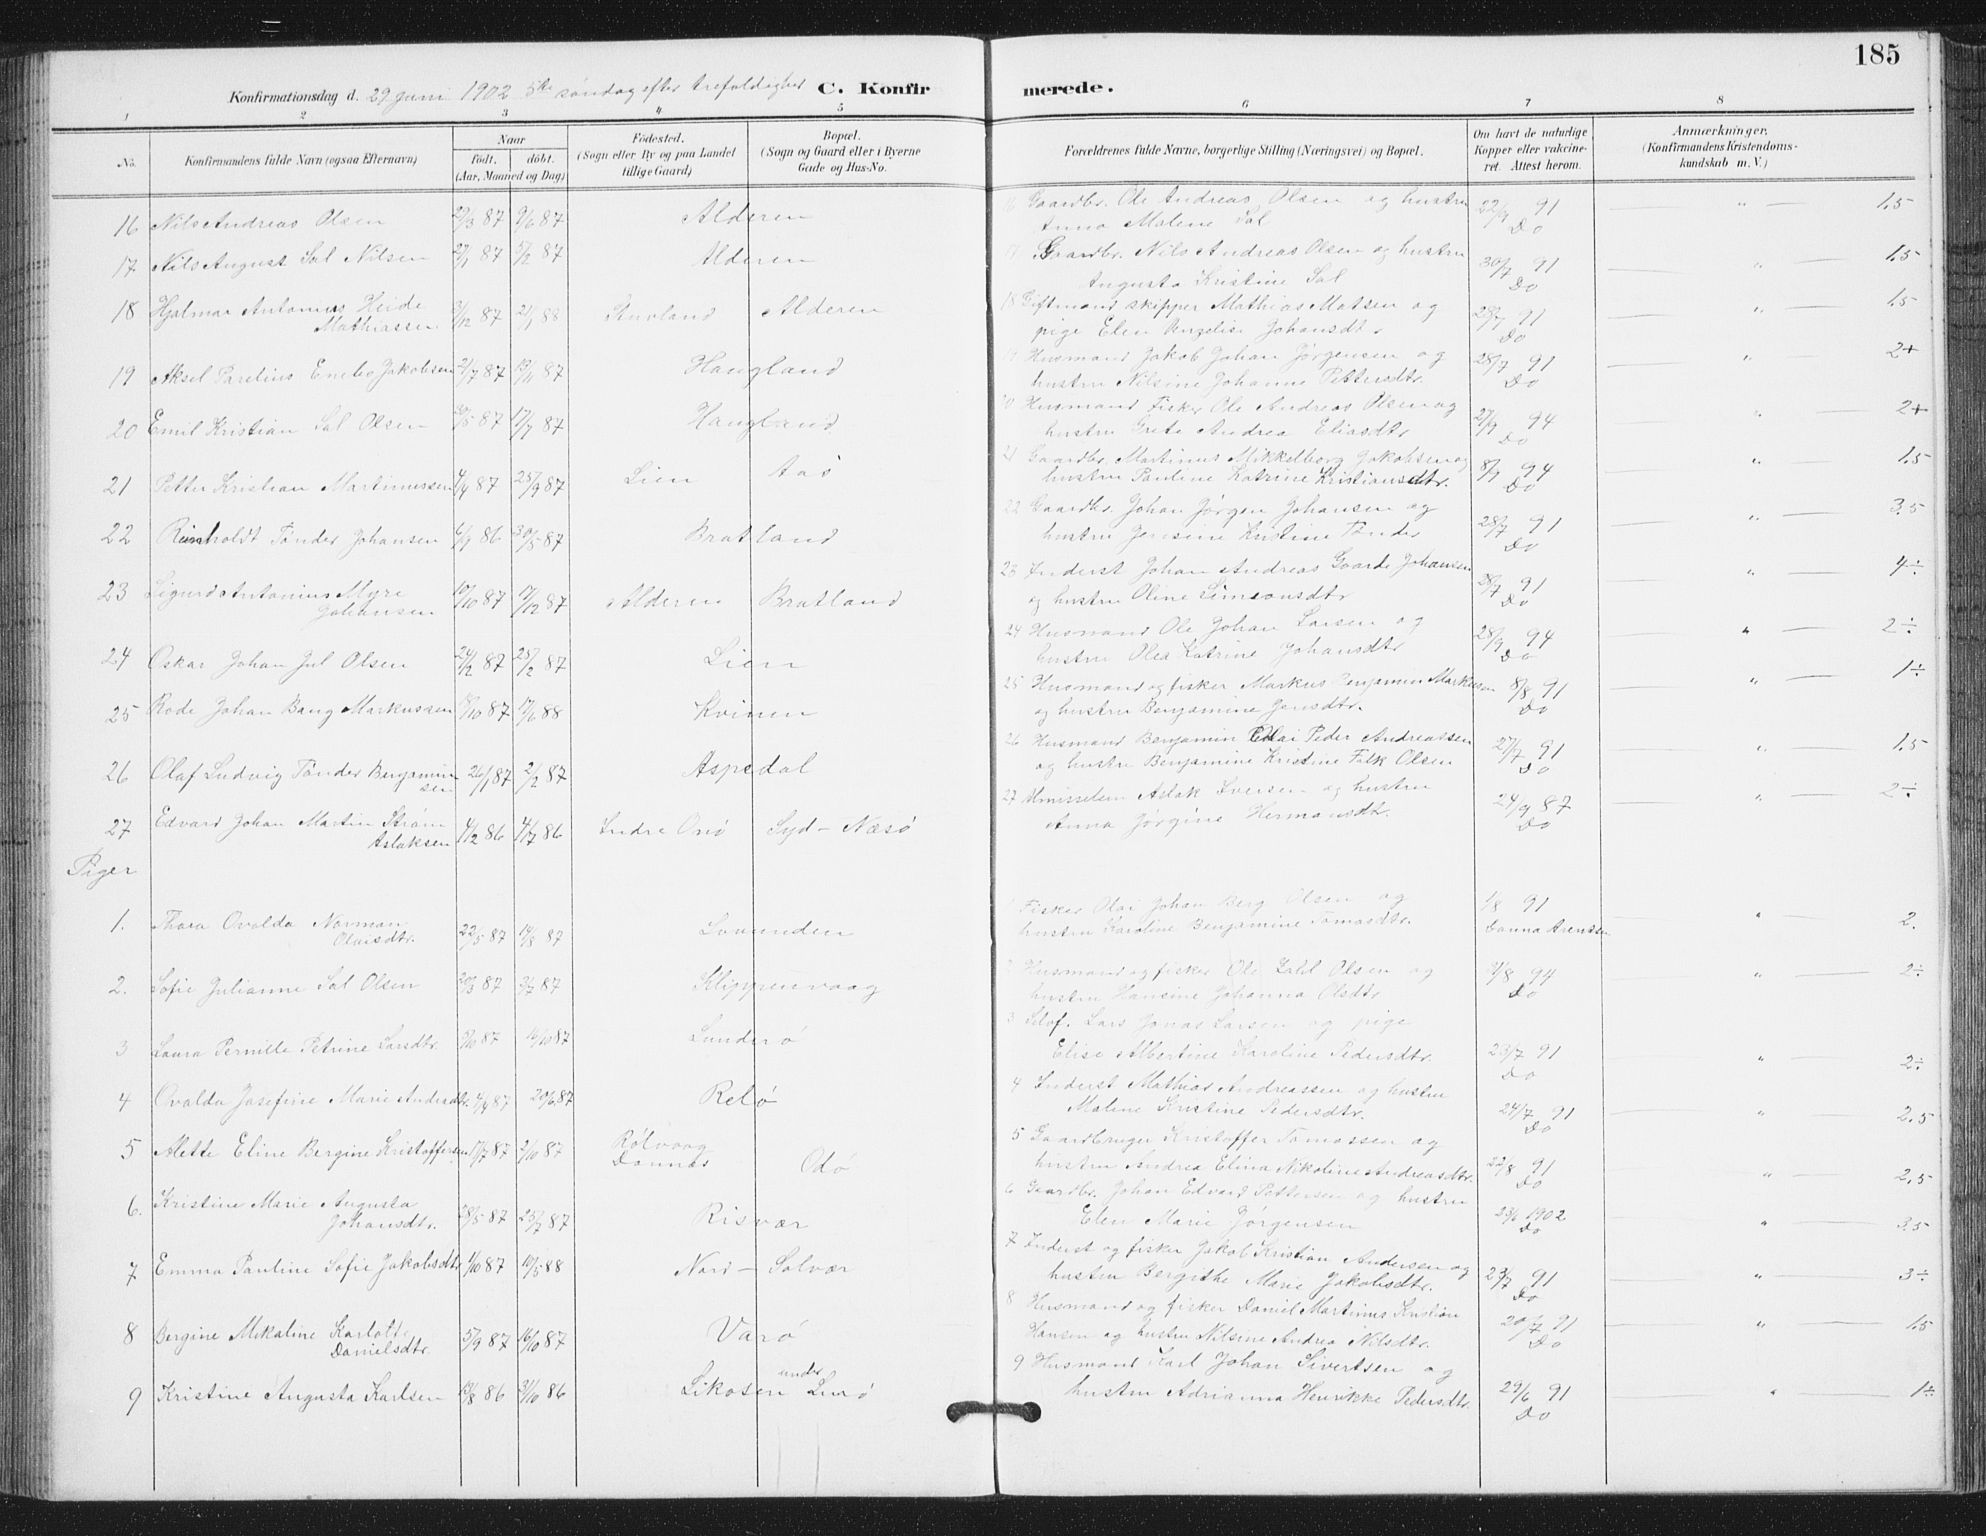 185
Konfirmationsdag d. 29 juni 1902 5te søndag efter trefoldighed C. Konfirmerede.
1 2 3 4 5 6 7 8
No. Konfirmandens fulde Navn (ogsaa Efternavn) Naar født. døbt. (Aar, Maaned og Dag) Fødested. (Sogn eller By og paa Landet tillige Gaard) Bopæl. (Sogn og Gaard eller i Byerne Gade og Hus-No. Forældrenes fulde Navne, borgerlige Stilling (Næringsvei) og Bopæl. Om havt de naturlige Kopper eller vakcineret. Attest herom. Anmærkninger. (Konfirmandens Kristendomskundskab m. V.)
16 Nils Andreas Olsen 27/3 87 9/6 87 Alderen 16 Gaardbr. Ole Andreas Olsen og hustru 22/9 91 " 1.5
Anna Malene Sal Do
17 Nils August Sal Nilsen 27/1 87 5/2 87 Alderen 17 Gaardbr. Nils Andreas Olsen og hustru 30/7 91 " 1.5
Augusta Kristine Sal Do
18 Hjalmar Antonius Heide 3/12 87 21/1 88 Alderen 18 Giftmand skipper Mathias Matsen og 28/7 91 " 1.5
Mathiassen pige Elen Angelise Johansdtr Do
19 Aksel Parelius Enebo Jakobsen 21/7 87 13/11 87 Haugland 19 Husmand Jakob Johan Jørgensen og 28/7 91 " 2+
hustru Nilsine Johanne Pettersdtr. Do
20 Emil Kristian Sal Olsen 20/5 87 17/7 87 Haugland 20 Husmand Fisker Ole Andreas Olsen og 27/9 94 " 2+
hustru Grete Andrea Eliasdtr Do
21 Petter Kristian Martinussen 4/4 87 25/9 87 Lien Aasø 21 Gaardbr. Martinus Mikkelborg Jakobsen og 8/9 94 " 1.5
hustru Pauline Katrine Kristiansdtr. Do
22 Reinholdt Tønder Johansen 6/9 86 30/5 87 Bratland 22 Gaardbr. Johan Jørgen Johansen og 28/7 91 " 3.5
hustru Jensine Kristine Tønder Do
23 Sigurd Antonius Myre 10/10 87 17/12 87 Alderen Bratland 23 Inderst Johan Andreas Gaarde Johansen 28/7 91 " 4÷
Johansen og hustru Oline Simonsdtr Do
24 Oskar Johan Jul Olsen 24/2 87 25/2 87 Lien 24 Husmand Ole Johan Larsen og 28/9 94 " 2÷
hustru Olea Katrine Johansdtr Do
25 Rode Johan Bang Markussen 18/10 87 17/6 88 Kvinen 25 Husmand og fisker Markus Benjamin Markussen 8/8 91 " 1÷
og hustru Benjamine Jensdtr. Do
26 Olaf Ludvig Tønder Benjamin 26/1 87 2/2 87 Aspedal 26 Husmand Benjamin Olai Peder Andreassen 27/7 91 " 1.5
sen og hustru Benjamine Kristine Falk Olsen Do
27 Edvard Johan Martin Strøm 4/2 86 4/7 86 Indre Onø Syd-Næsø 27 Aslak Iversen og hustru 24/9 87 " 2÷
Aslaksen Anna Jørgine Hermansdtr. Do
Piger
1. Thora Ovalda Norman 22/5 87 14/8 87 Lovunden 1 Fisker Olai Johan Berg Olsen og 1/8 91 " 2.
Olaisdtr. hustru Karoline Benjamine Tomasdtr. Arentsen
2. Sofie Julianne Sal Olsen 20/3 87 3/7 87 Klippenvaag 2 Husmand og fisker Ole Olsen og 4/8 94 " 2÷
hustru Hansine Johanna Olsdtr Do
3 Laura Pernille Petrine Larsdtr. 5/10 87 16/10 87 Sunderø 3 Selof. Lars Jonas Larsen og pige
Elise Albertine Karoline Pedersdtr. 23/7 91 " 2÷
Do
4 Ovalda Josefine Marie Andersdtr. 4/4 87 20/6 87 Relø 4 Inderst Mathias Andreassen og hustru
Maline Kristine Pedersdtr. 24/7 91 " 2.5
Do
5 Alette Eline Bergine Kristoffersen 17/7 87 2/10 87 Rølvaag Dønnæs Odø 5 Gaardbruger Kristoffer Tomassen og
hustru Andrea Elina Nikoline Andreasdtr. 22/8 91 " 2.5
Do
6. Kristine Marie Augusta 28/5 87 25/7 87 Risvær 6 Gaardbr. Johan Edvard Pettersen og hustru
Johansdtr. Elen Marie Jørgensen 23/6 1902 " 3.5
Do
7 Emma Pauline Sofie Jakobsdtr 1/10 87 10/5 88 Nord-Solvær 7 Inderst og fisker Jakob Kristian Andersen og
hustru Bergithe Marie Jakobsdtr. 23/7 91 " 3÷
Do
8 Bergine Mikaline Karlotte 5/9 87 16/10 87 Varø 8 Husmand og fisker Daniel Martinus Kristian 20/7 91 " 1.5
Danielsdtr. Hansen og hustru Nilsine Andrea Nilsdtr. Do
9 Kristine Augusta Karlsen 13/8 86 3/10 86 Likosen under Lurø 9 Husmand Karl Johan Sivertsen og
hustru Adrianna Henrikke Pedersdtr. 29/6 91 " 1÷
Do